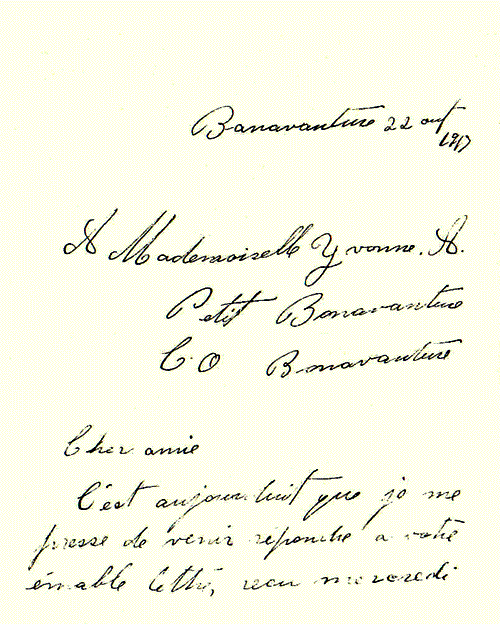 Bonavanture 22 out
1917
A Mademoiselle Yvonne. A.
Petit Bonavanture
C. O Bonavanture
Cher amie
C'est aujourduit que je me
presse de venir réponche a votre
émable lettre, recu mercredi